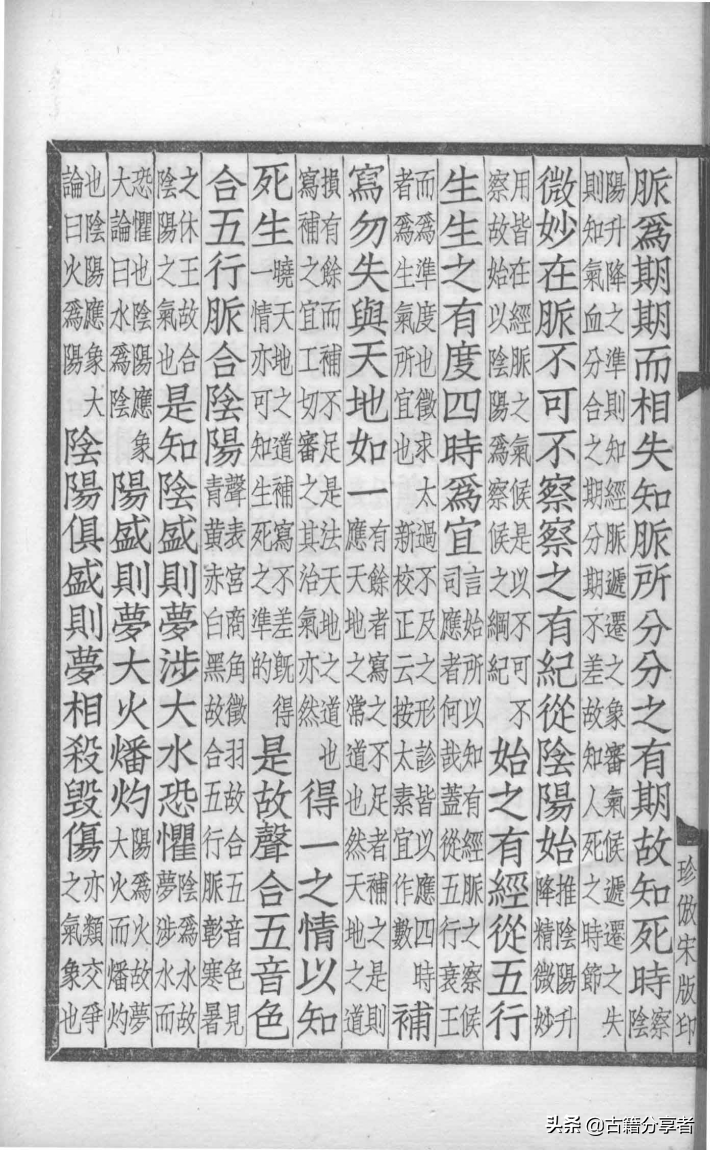 珍倣宋版印
脈爲期期而相失知脈所分分之有期故知死時察陰
陽升降之準則知經脈遞遷之象審氣候遞遷之失
則知氣血分合之期分期不差故知人死之時節
微妙在脈不可不察察之有紀從陰陽始推陰陽升降精微妙
用皆在經脈之氣候是以不可不察故始以陰陽爲察候之綱紀始之有經從五行
生生之有度四時爲宜言始所以知有經脈之察候司應者何哉蓋從五行衰王
而爲準度也徵求太過不及之形診皆以應四時者爲生氣所宜也 新校正云按太素宜作數補
寫勿失與天地如一有餘者寫之不足者補之是則應天地之常道也然天地之道
損有餘而補不足是法天地之道也寫補之宜工切審之其治氣亦然得一之情以知
死生曉天地之道補寫不差既得一情亦可知生死之準的是故聲合五音色
合五行脈合陰陽聲表宮商角徵羽故合五音色見青黃赤白黑故合五行脈彰寒暑
之休王故合陰陽之氣也是知陰盛則夢涉大水恐懼陰爲水故夢涉水而
恐懼也陰陽應象大論曰水爲陰陽盛則夢大火燔灼陽爲火故夢大火而燔灼
也陰陽應象大論曰火爲陽陰陽俱盛則夢相殺毀傷亦類交爭之氣象也
头条 @古籍分享者